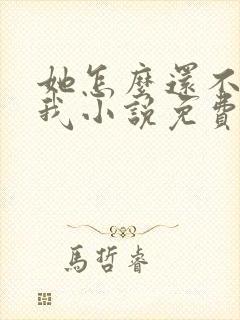 她怎麼還不
我小說免費
馬哲睿